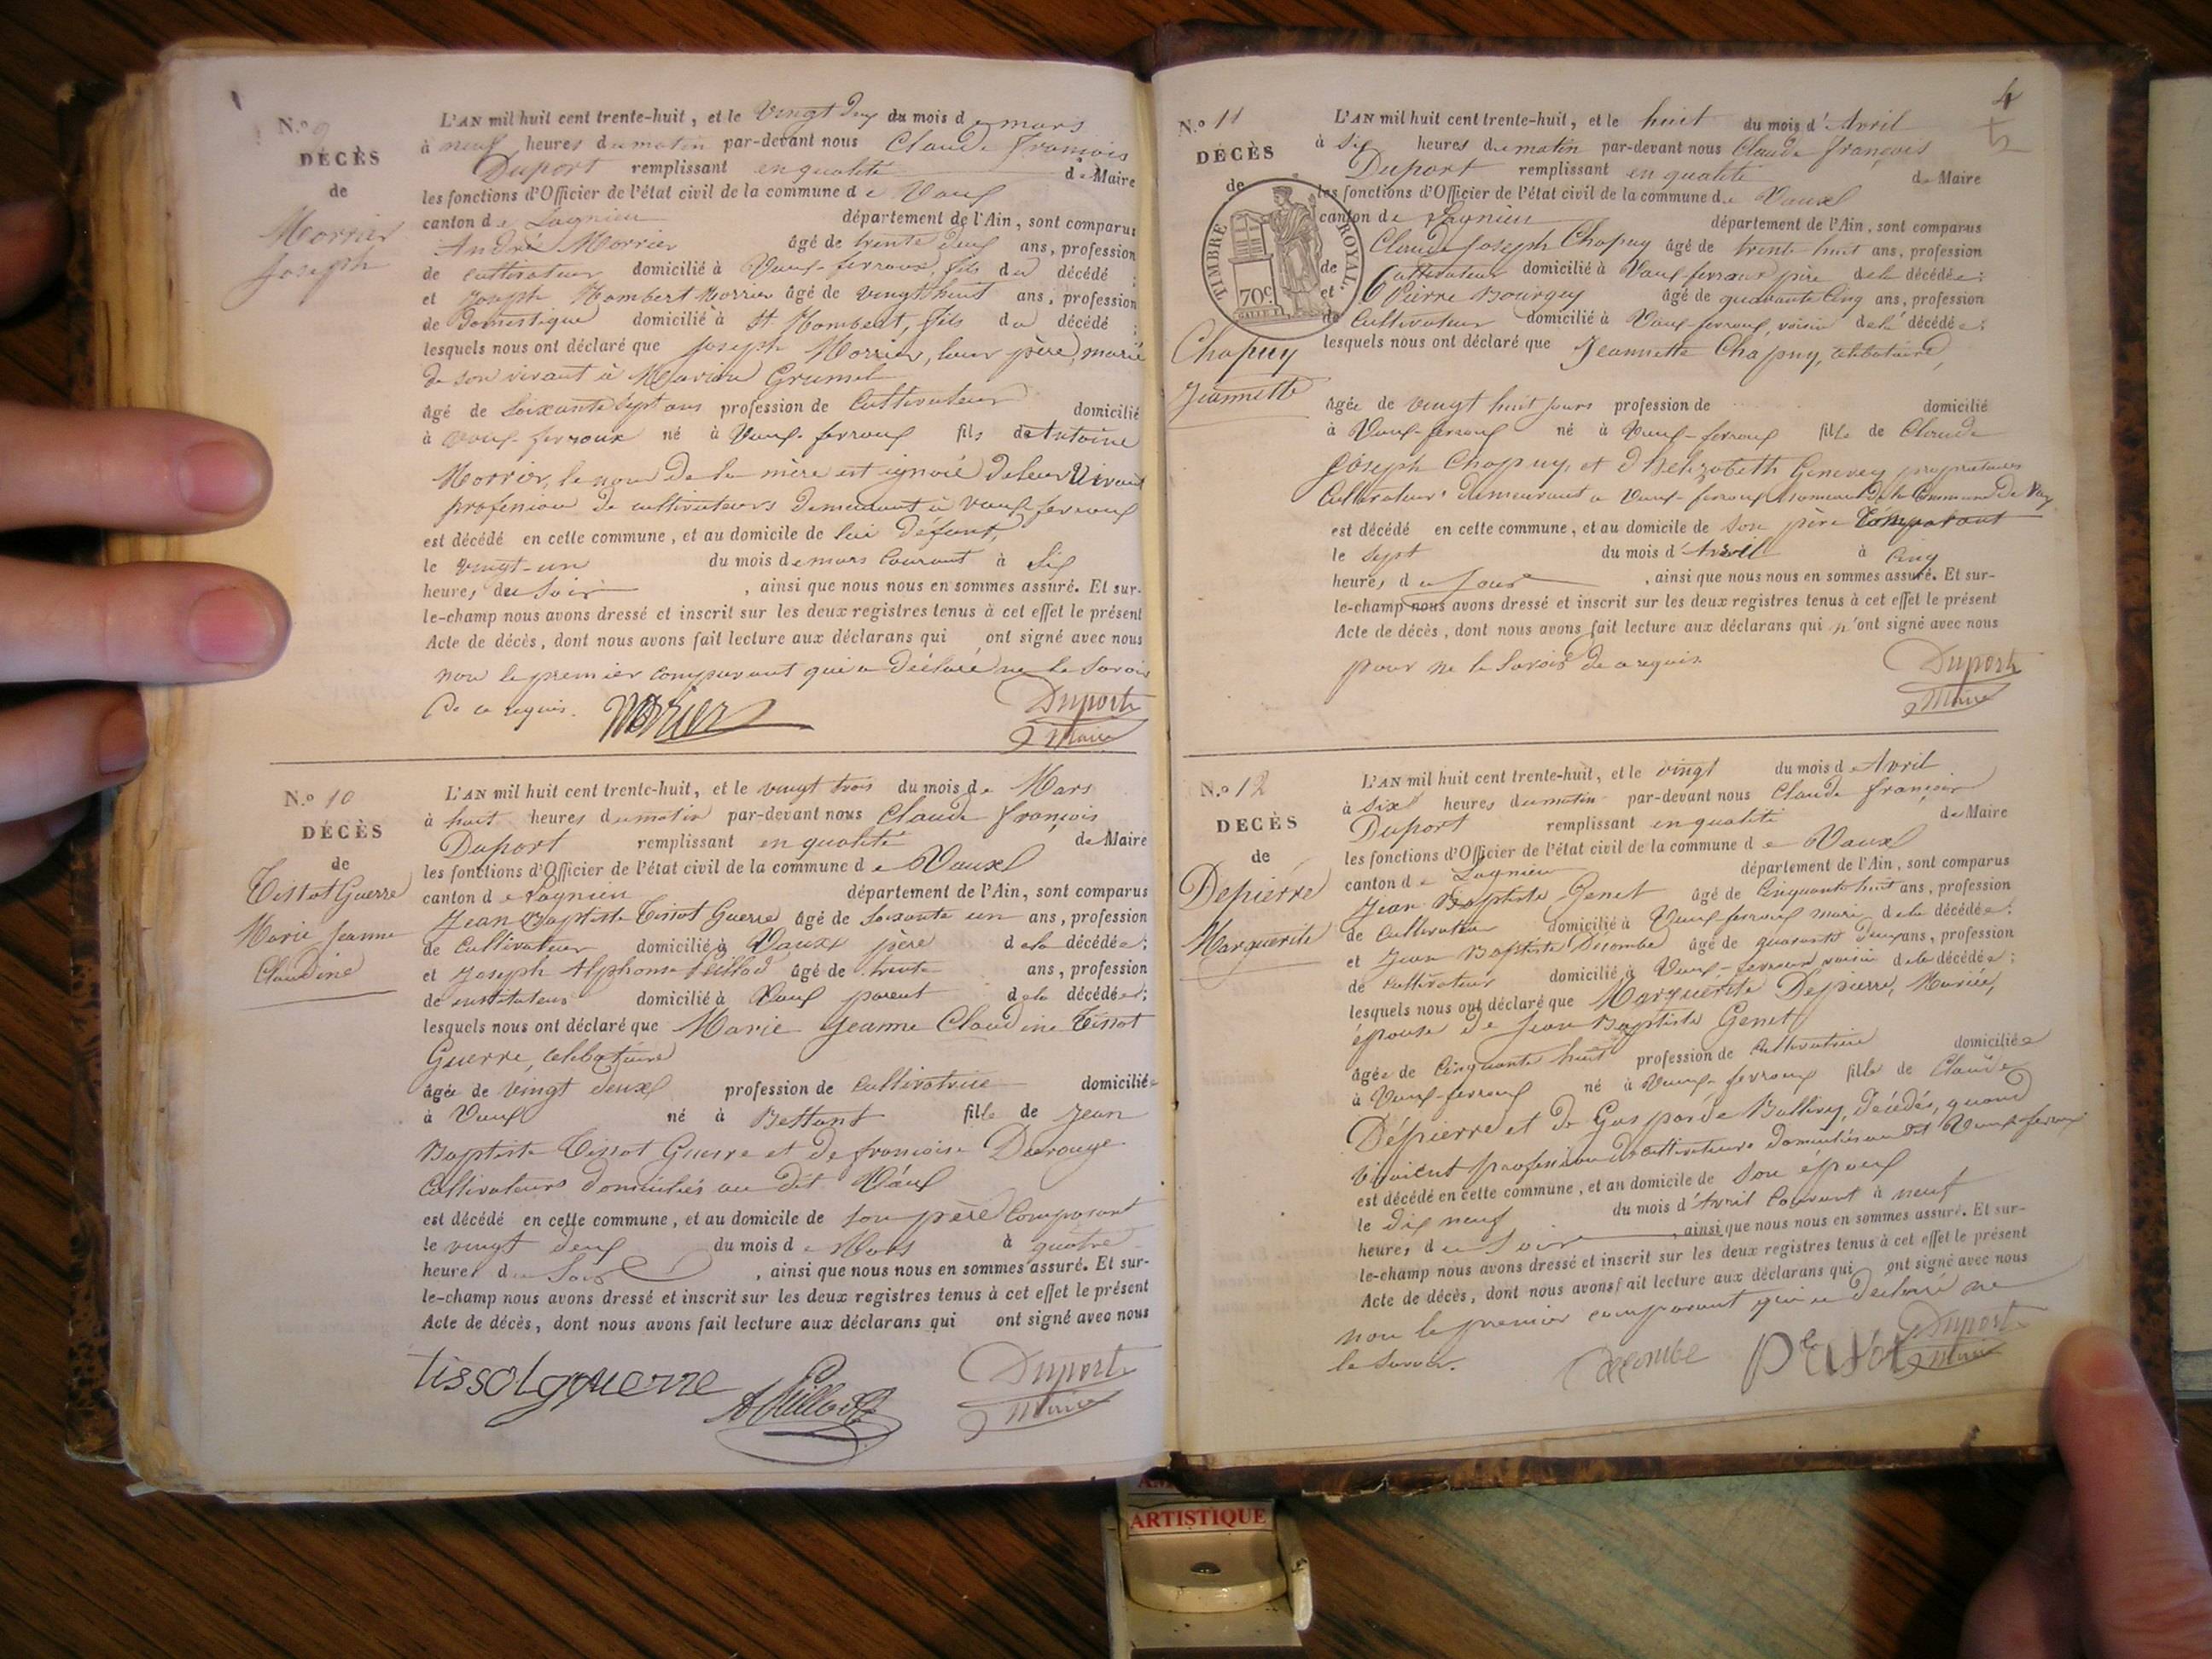 N.o 9
DÉCÈS
de
Morrier
Joseph
L'AN mil huit cent trente-huit, et le vingt deux du mois de mars
à neuf heures du matin par-devant nous Claude françois
Duport remplissant en qualité de Maire
les fonctions d'Officier de l'état civil de la commune de Vaux
canton de Lagnieu département de l'Ain, sont comparus
André Morrier âgé de trente deux ans, profession
de cultivateur domicilié à Vaux-ferroux, fils du décédé ;
et Joseph Hombert Morrier âgé de vingt huit ans, profession
de domestique domicilié à St. Hombert, fils du décédé ;
lesquels nous ont déclaré que Joseph Morrier, leur père, marié
de son vivant à Grumel
âgé de soixante sept ans profession de Cultivateur domicilié
à Vaux-ferroux né à Vaux-ferroux fils de Antoine
Morrier, le nom de la mère est ignoré de leur vivant
profession de cultivateurs demeurant à vaux ferroux
est décédé en cette commune, et au domicile de lui défunt,
le vingt-un du mois de mars courant à six
heures du soir , ainsi que nous nous en sommes assuré. Et sur-
le-champ nous avons dressé et inscrit sur les deux registres tenus à cet effet le présent
Acte de décès, dont nous avons fait lecture aux déclarans qui ont signé avec nous
non le premier comparant qui a déclaré ne le savoir
de ce requis. Morier Duport
Maire
N.o 10
DÉCÈS
de
Tissot Guerre
Marie Jeanne
Claudine
L'AN mil huit cent trente-huit, et le vingt trois du mois de Mars
à huit heures du matin par-devant nous Claude françois
Duport remplissant en qualité de Maire
les fonctions d'Officier de l'état civil de la commune de Vaux
canton de Lagnieu département de l'Ain, sont comparus
Jean Baptiste Tissot Guerre âgé de soixante un ans, profession
de Cultivateur domicilié à Vaux père de la décédée ;
et Joseph Alphonse âgé de trente ans, profession
de instituteur domicilié à Vaux parent de la décédée ;
lesquels nous ont déclaré que Marie Jeanne Claudine Tissot
Guerre, célibataire
âgée de vingt deux profession de cultivatrice domiciliée
à Vaux né à Bettant fille de Jean
Baptiste Tissot Guerre et de françoise
Cultivateurs domiciliés au dit Vaux
est décédé en cette commune, et au domicile de son père Comparant
le vingt deux du mois de Mars à quatre
heures du Soir , ainsi que nous nous en sommes assuré. Et sur-
le-champ nous avons dressé et inscrit sur les deux registres tenus à cet effet le présent
Acte de décès, dont nous avons fait lecture aux déclarans qui ont signé avec nous
tissotguerre Duport
Maire
4
N.o 11
DÉCÈS
de
TIMBRE ROYAL.
70c.
Chapuy
Jeannette
L'AN mil huit cent trente-huit, et le huit du mois d'Avril
à six heures du matin par-devant nous Claude françois
Duport remplissant en qualité de Maire
les fonctions d'Officier de l'état civil de la commune de Vaux
canton de Lagnieu département de l'Ain, sont comparus
Claude Joseph Chapuy âgé de trente huit ans, profession
de Cultivateur domicilié à Vaux-ferroux père de la décédée ;
et Pierre Bourgey âgé de quarante Cinq ans, profession
de Cultivateur domicilié à Vaux-ferroux, voisin de la décédée ;
lesquels nous ont déclaré que Jeannette Chapuy, célibataire,
âgée de vingt huit jours profession de domicilié
à Vaux-ferroux né à Vaux-ferroux fille de Claude
Joseph Chapuy, et d'helizabeth Genevey propriétaires
Cultivateurs demeurant a Vaux-ferroux de la Commune de Vaux
est décédé en cette commune, et au domicile de son père Comparant
le sept du mois d'Avril à Cinq
heures du , ainsi que nous nous en sommes assuré. Et sur-
le-champ nous avons dressé et inscrit sur les deux registres tenus à cet effet le présent
Acte de décès, dont nous avons fait lecture aux déclarans qui n'ont signé avec nous
pour ne le savoir de ce requis. Duport
Maire
N.o 12
DÉCÈS
de
Dépierre
Marguerite
L'AN mil huit cent trente-huit, et le vingt du mois d'Avril
à six heures du matin par-devant nous Claude françois
Duport remplissant en qualité de Maire
les fonctions d'Officier de l'état civil de la commune de Vaux
canton de Lagnieu département de l'Ain, sont comparus
Jean Baptiste Genet âgé de Cinquante huit ans, profession
de Cultivateur domicilié à Vaux-ferroux mari de la décédée ;
et Jean Baptiste Decombe âgé de quarante deux ans, profession
de cultivateur domicilié à Vaux-ferroux voisin de la décédée ;
lesquels nous ont déclaré que Marguerite Depierre, Mariée,
épouse de Jean Baptiste Genet
âgée de Cinquante huit profession de Cultivatrice domiciliée
à Vaux-ferroux né à Vaux-ferroux fille de Claude
Dépierre et de Gasparde Ballivy, décédés, quand
vivaient profession de cultivateurs domiciliés au dit Vaux-ferroux
est décédé en cette commune, et au domicile de son époux
le Dix neuf du mois d'Avril Courant à neuf
heures du Soir , ainsi que nous nous en sommes assuré. Et sur-
le-champ nous avons dressé et inscrit sur les deux registres tenus à cet effet le présent
Acte de décès, dont nous avons fait lecture aux déclarans qui ont signé avec nous
non le premier comparant qui a déclaré ne
le savoir. Decombe Duport
Maire
ARTISTIQUE